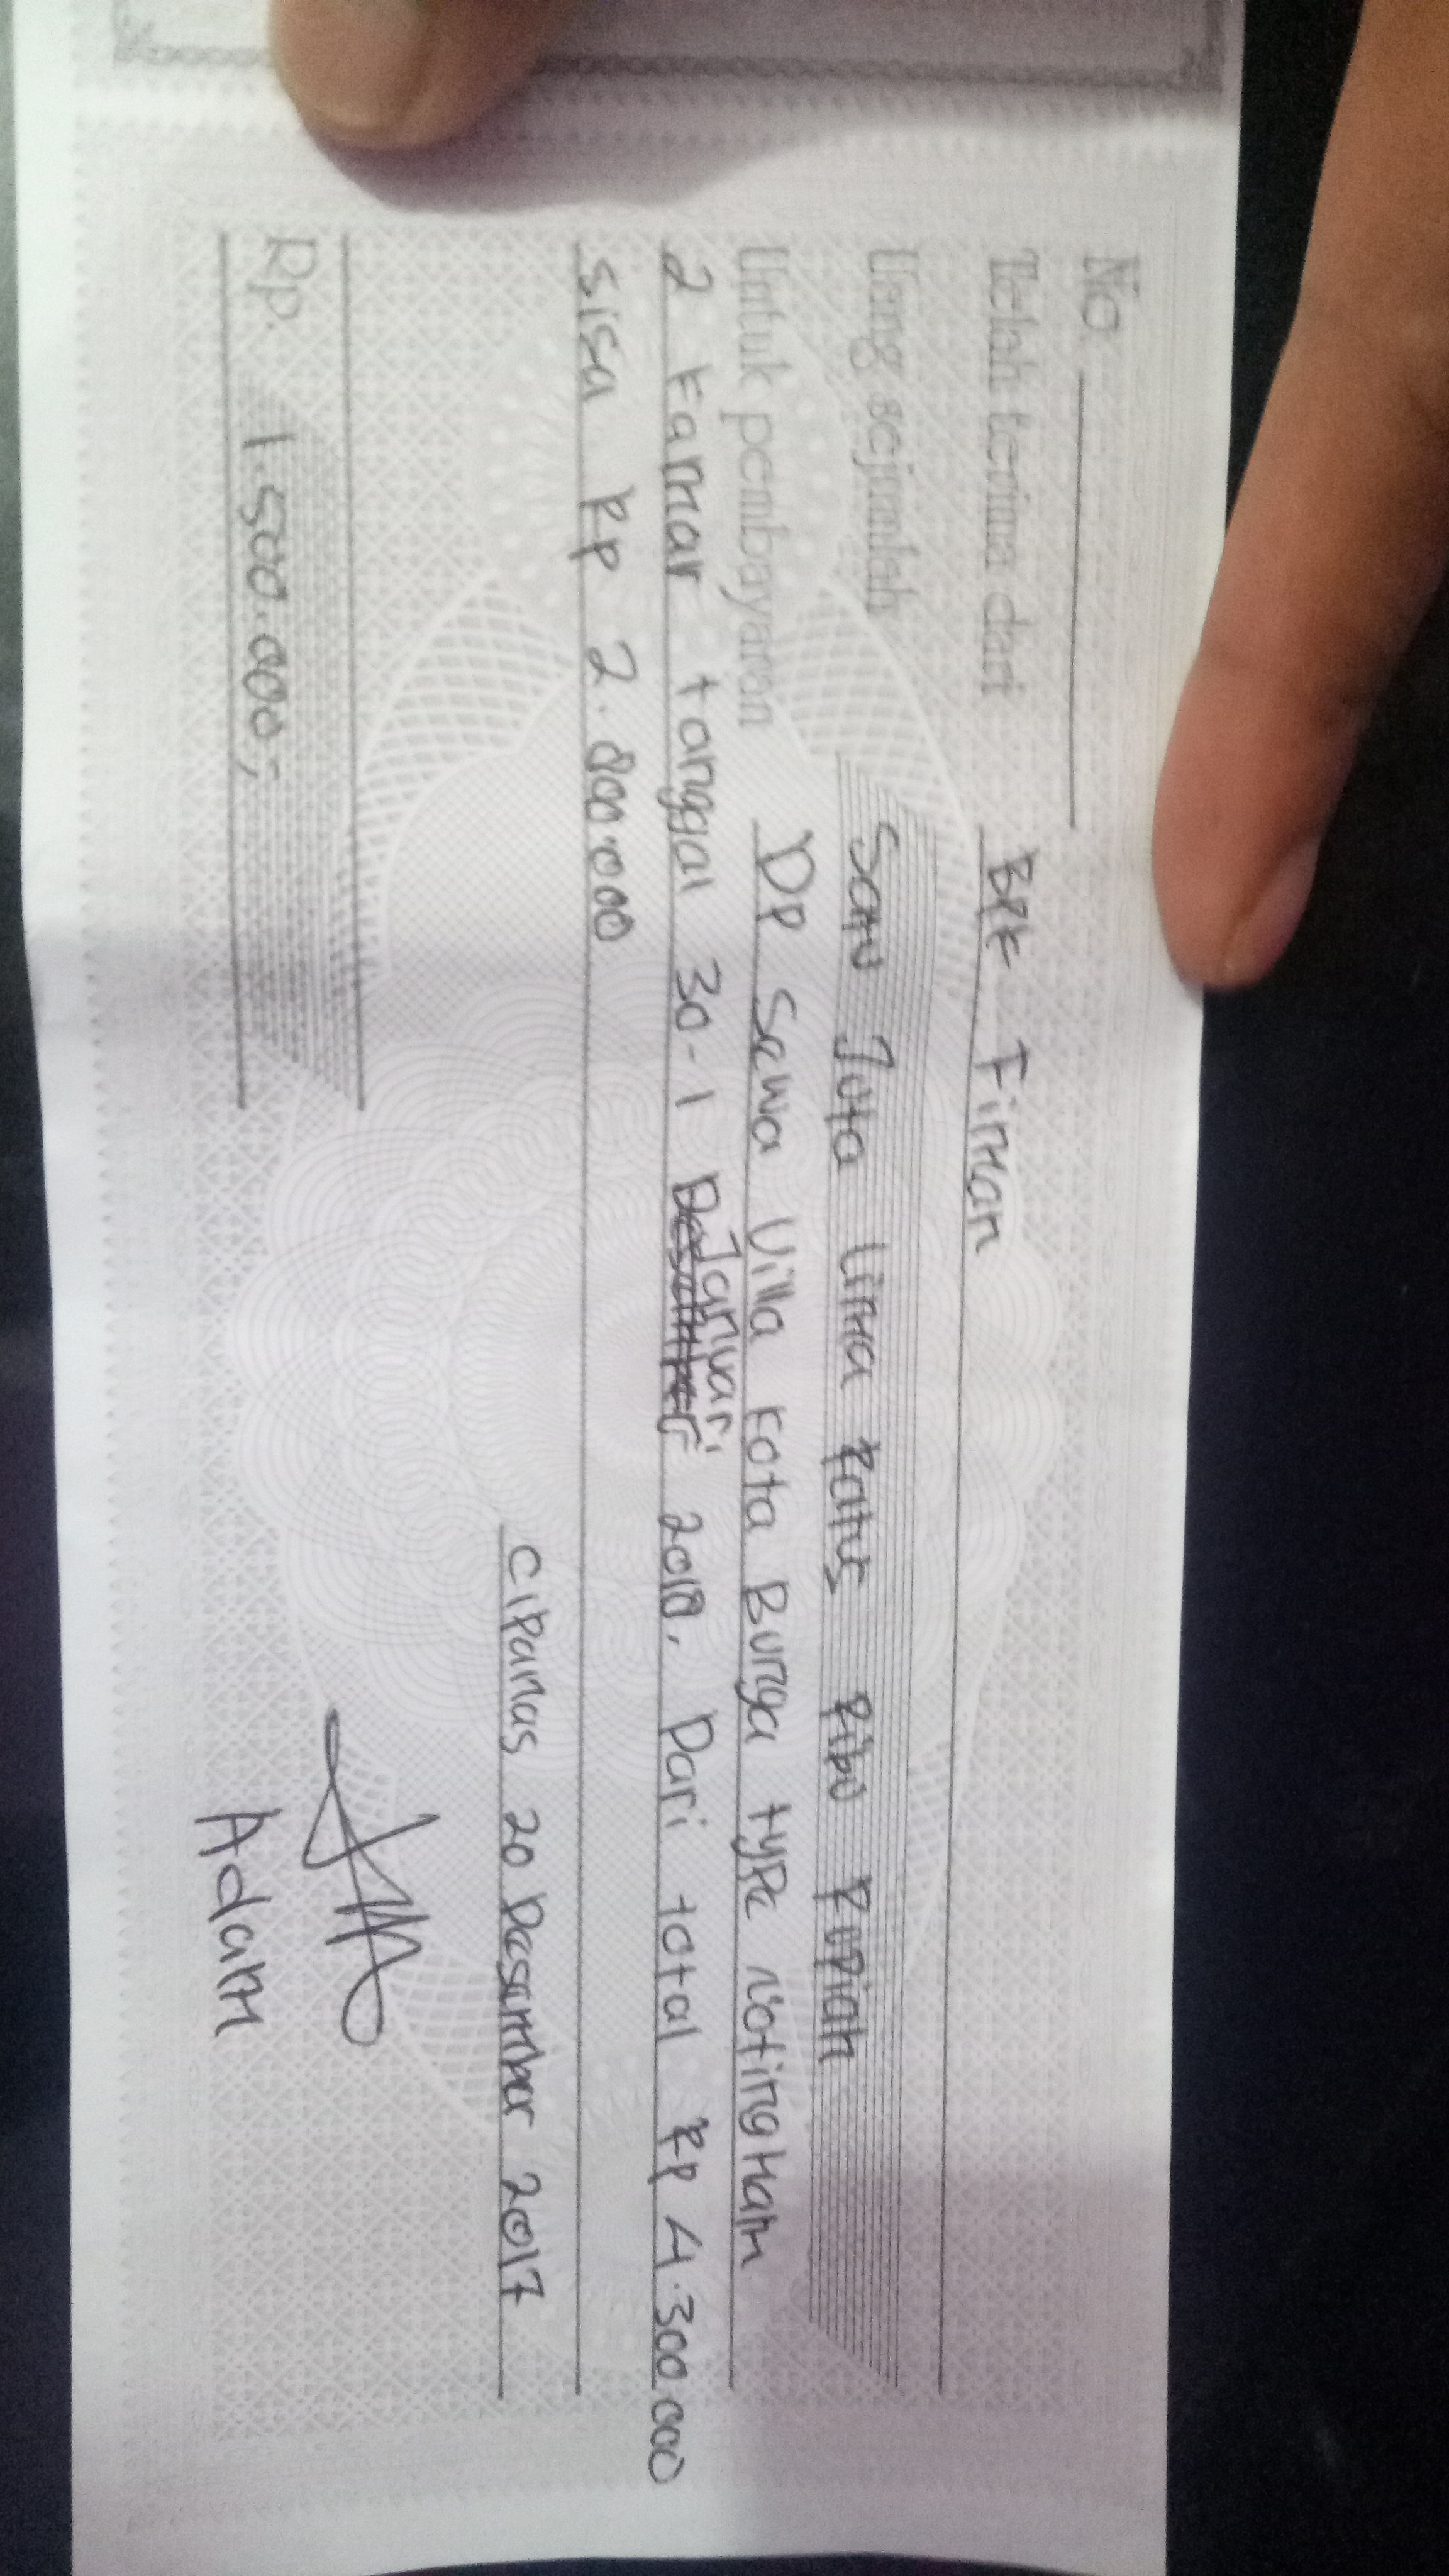 No.
Telah terima dari BPK Firman
Uang sejumlah Satu Juta lima Ratus Ribu Rupiah
Untuk pembayaran DP Sewa Villa Kota Bunga type NotingHam
2 Kamar tanggal 30-1 Januari 2018. Dari total Rp 4.300.000
sisa Rp 2.800.000
Cipanas 20 Desember 2017
Rp. 1.500.000,-
Adam